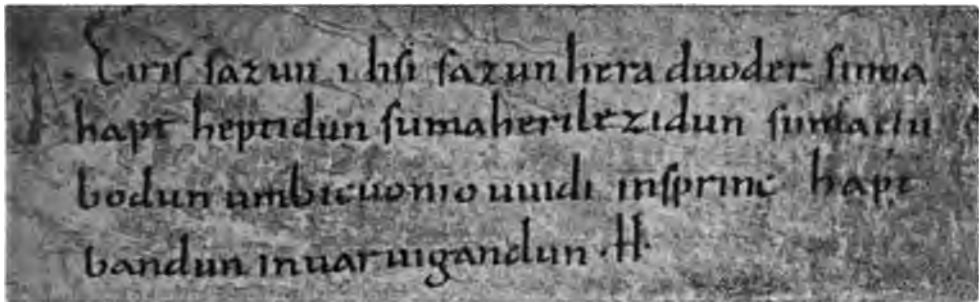 Eiris sazun idisi sazun hera duoder suma
hapt heptidun suma heri lezidun suma clu
bodun umbi cuonio uuidi insprinc hapt
bandun inuar uigandun · H ·